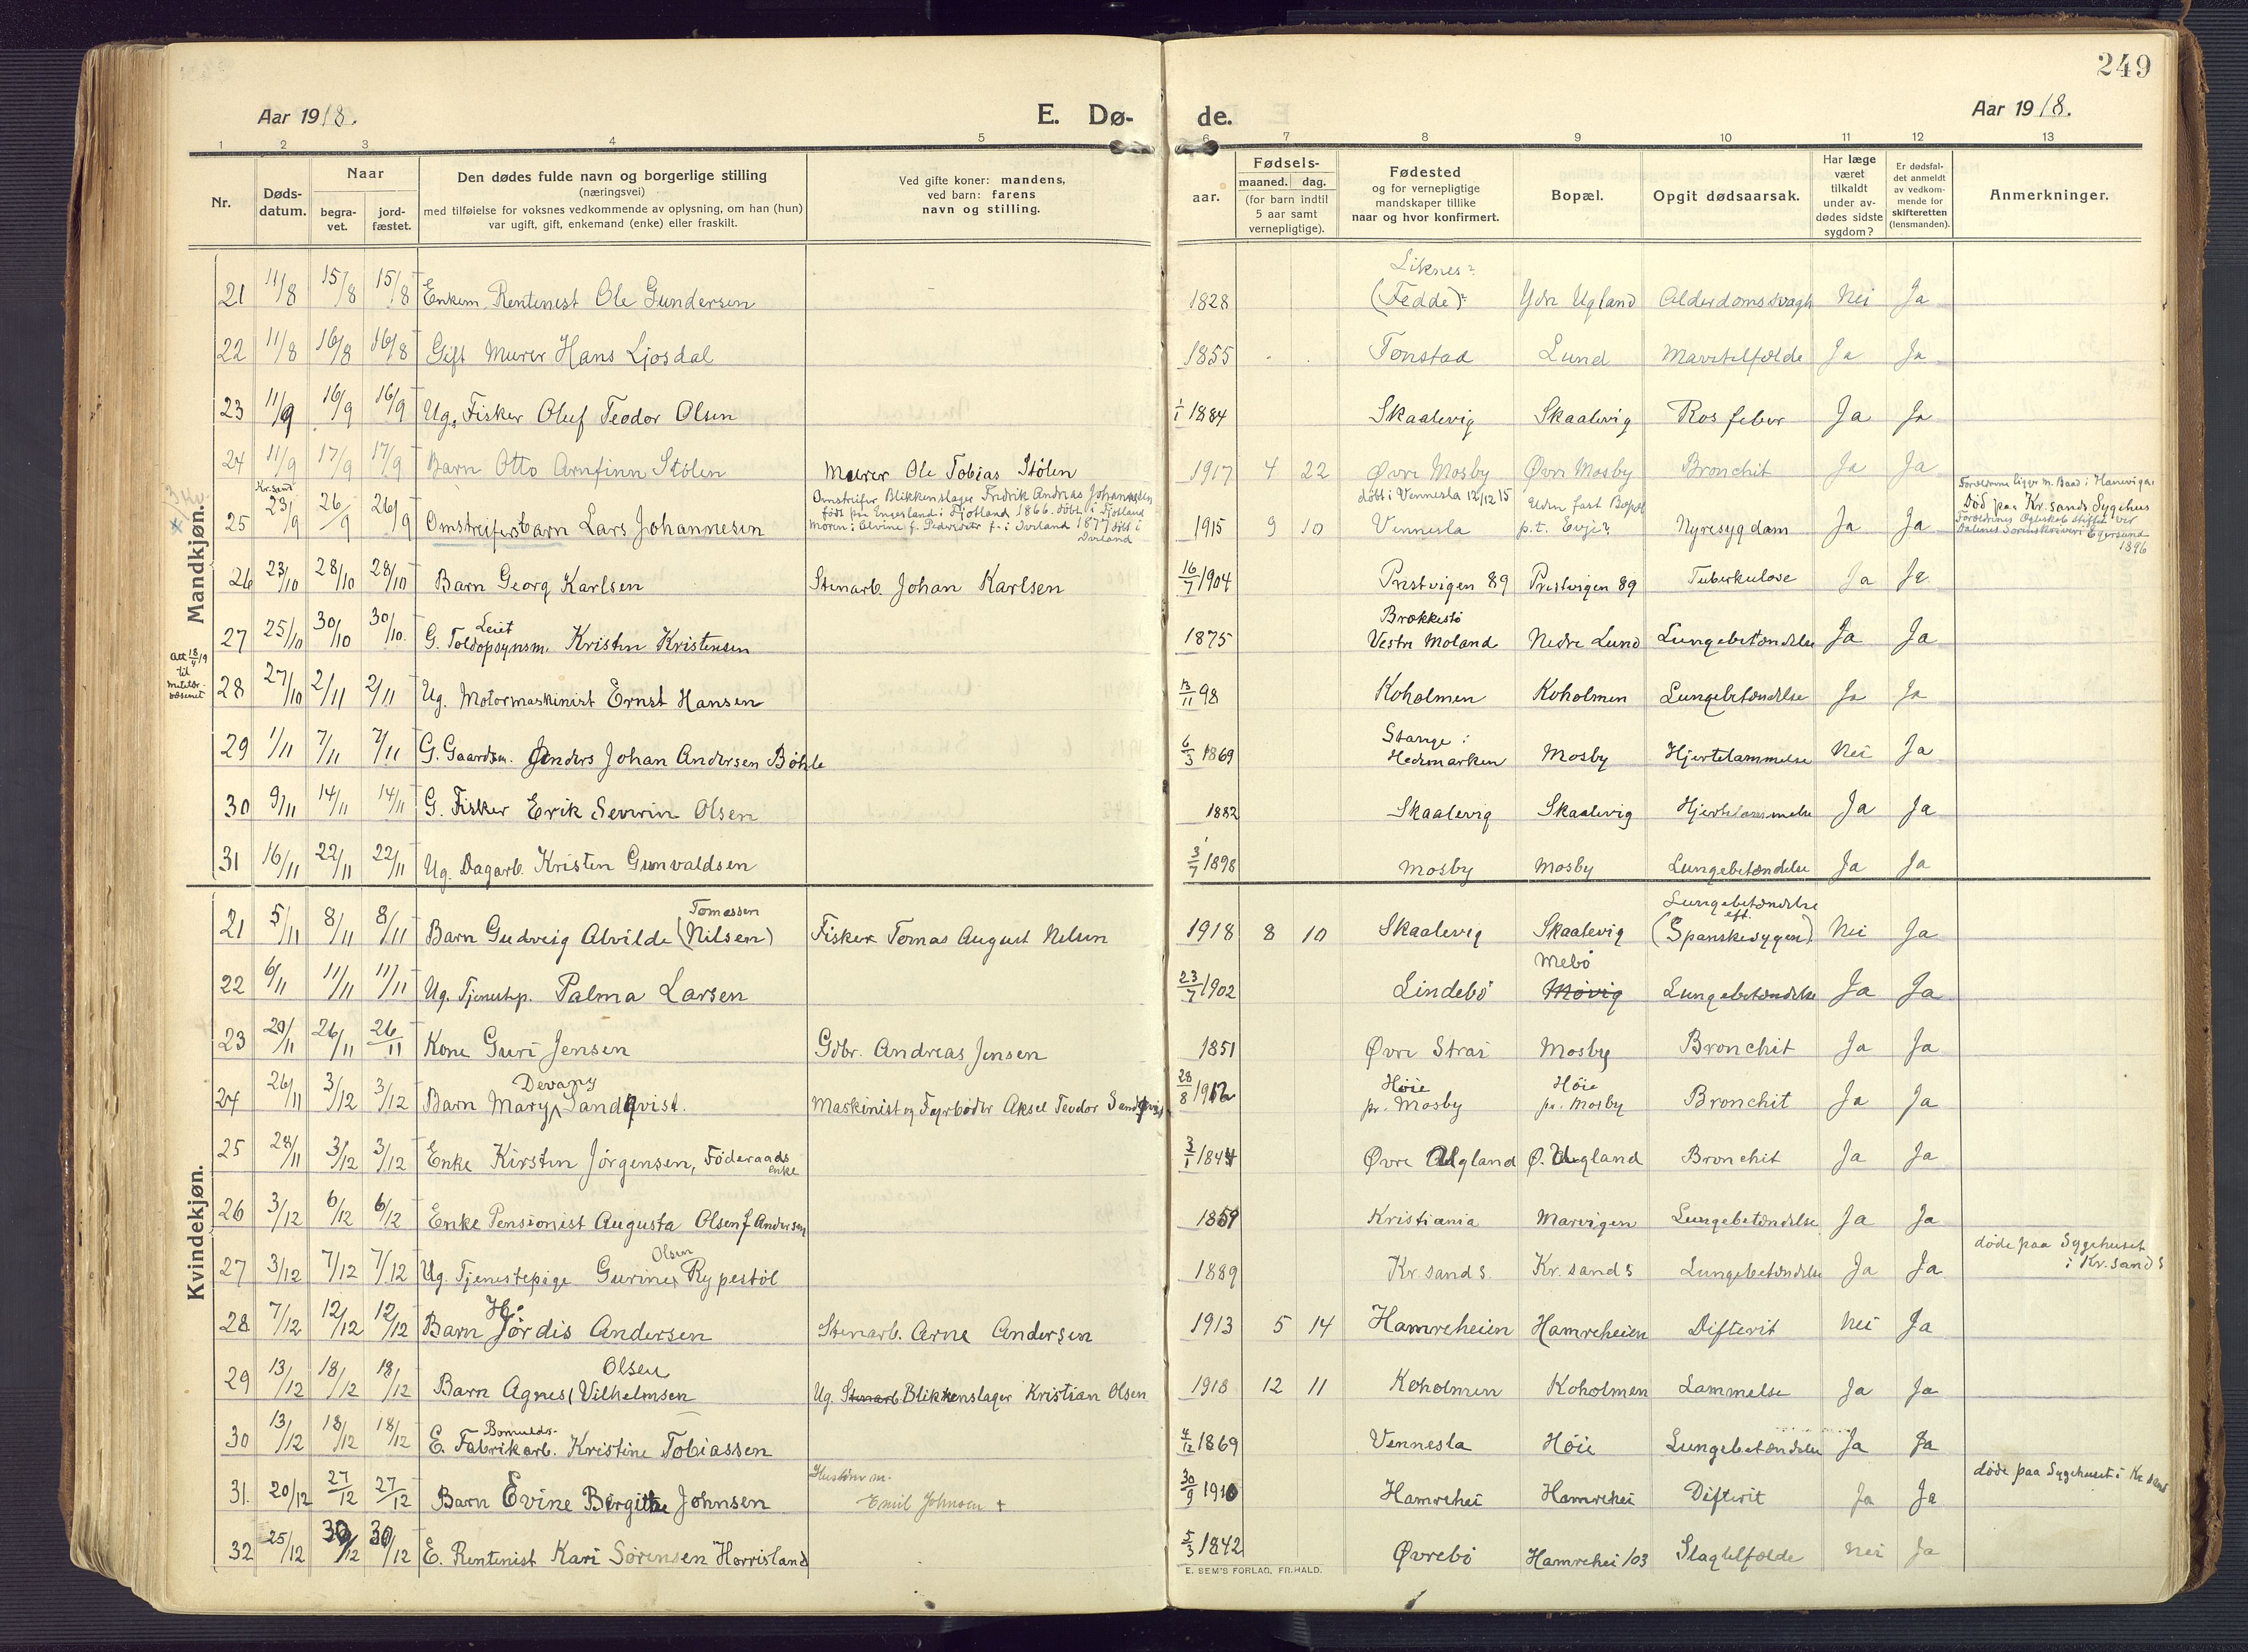 249
Aar 1918.
E. Dø-
de.
Aar 1918.
1 2 3 4 5 6 7 8 9 10 11 12 13
Nr.
Døds-
datum.
Naar
begra-
vet.
jord-
fæstet.
Den dødes fulde navn og borgerlige stilling
(næringsvei)
med tilføielse for voksnes vedkommende av oplysning, om han (hun)
var ugift, gift, enkemand (enke) eller fraskilt.
Ved gifte koner: mandens,
ved barn: farens
navn og stilling.
aar.
Fødsels-
maaned. dag.
(for barn indtil
5 aar samt
vernepligtige).
Fødested
og for vernepligtige
mandskaper tillike
naar og hvor konfirmert.
Bopæl.
Opgit dødsaarsak.
Har læge
været
tilkaldt
under av-
dødes sidste
sygdom?
Er dødsfal-
det anmeldt
av vedkom-
mende for
skifteretten
(lensmanden).
Anmerkninger.
Mandkjøn.
21 11/8 15/8 15/8 Enkem. Rentenist Ole Gundersen - 1828 Liknes? (Fedde)? Ydr Ugland Alderdomssvagh Nei Ja
22 11/8 16/8 16/8 Gift Murer Hans Ljosdal 1855 Tonstad Lund Mavetilfælde Ja Ja
23 11/9 16/9 16/9 Ug. Fisker Oluf Teodor Olsen 1/1 1884 Skaalevig Skaalevig Rosfeber Ja Ja
24 11/9 17/9 17/9 Barn Otto Arnfinn Stölen Murer Ole Tobias Stölen 1917 4 22 Øvre Mosby Øvre Mosby Bronchit Ja Ja
Kr.sand
25 23/9 26/9 26/9 Omstreiferbarn Lars Johannesen
Omstreifer Blikkenslager Fredrik Andreas Johannesen
født paa Engesland i Fjotland 1866. døbt i Fjotland
Moren: Alvine f. Pedersdtr f. i Iveland 1877 døbt i
Iveland
1915 9 10 døbt i Vennesla 12/12 15 Vennesla Uden fast Bopæl p.t. Evje? Nyresygdom Ja Ja
Forældrene ligger m. Baad i Hanevigen
Død paa Kr.sands Sygehus
Forældrenes Egteskab stiftet ved
Dalenes Sorenskriveri Egersund
1896
26 23/10 28/10 28/10 Barn Georg Karlsen Stenarb. Johan Karlsen 16/7 1904 Prestvigen 89 Prestvigen 89 Tuberkulose Ja Ja
27 25/10 30/10 30/10. G. Leiet Toldopsynsm. Kristen Kristensen 1875 Brækkestö Vestre Moland Nedre Lund Lungebetændelse Ja Ja
Att 18/4 19
til
militær-
væsenet
28 27/10 2/11 2/11 Ug. Motormaskinist Ernst Hansen 13/11 98 Koholmen Koholmen Lungebetændelse Ja Ja
29 1/11 7/11 7/11 G. Gaardm. Anders Johan Andersen Böhle 6/3 1869 Stange: Hedemarken Mosby Hjertelammelse Nei Ja
30 9/11 14/11 14/11 G. Fisker Erik Severin Olsen 1882 Skaalevig Skaalevig Hjertelammelse Ja Ja
31 16/11 22/11 22/11 Ug. Dagarb. Kristen Gunvaldsen 3/7 1898 Mosby Mosby Lungebetændelse Ja Ja
Kvindekjøn.
21 5/11 8/11 8/11 Barn Gudveig Alvilde Tomassen (Nilsen) Fisker Tomas August Nilsen 1918 8 10 Skaalevig Skaalevig Lungebetændelse eft. (Spanskesygen) Nei Ja
22 6/11 11/11 11/11 Ug. Tjenestep. Palma Larsen 23/7 1902 Lindebö Mebö Movig Lungebetændelse Ja Ja
23 20/11 26/11 26/11 Kone Guri Jensen Gdbr. Andreas Jensen 1851 Øvre Strai Mosby Bronchit Ja Ja
24 26/11 3/12 3/12 Barn Mary Devany Sandqvist. Maskinist og Fyrbøder Aksel Teodor Sandqvist 28/8 1912 Høie pr. Mosby Høie pr. Mosby Bronchit Ja Ja
25 28/11 3/12 3/12 Enke Kirsten Jörgensen, Föderaads enke 3/1 1844 Øvre Augland Ø. Augland Bronchit Ja Ja
26 3/12 6/12 6/12 Enke Pensionist Augusta Olsen f Andersen 1859 Kristiania Marvigen Lungebetændelse Ja Ja
27 3/12 7/12 7/12 Ug. Tjenestepige Gurine Olsen Rypestöl 1889 Kr.sand S Kr.sand S Lungebetændelse Ja Ja døde paa Sygehuset i Kr.sand S
28 7/12 12/12 12/12 Barn Hjördis Andersen Stenarb. Arne Andersen 1913 5 14 Hamreheien Hamreheien Difterit Nei Ja
29 13/12 18/12 18/12 Barn Agnes Olsen (Vilhelmsen Ug. Stenarb. Blikkenslager Kristian Olsen 1918 12 11 Koholmen Koholmen Lammelse Ja Ja
30 13/12 18/12 18/12 E. Bomulds- Fabrikarb. Kristine Tobiassen 4/12 1869 Vennesla Höie Lungebetændelse Ja Ja
31. 20/12 27/12 27/12 Barn Evine Birgitte Johnsen Hustøm m. Emil Johnsen + 30/9 1910 Hamrehei Hamrehei Difterit Ja Ja døde paa Sygehuset i Kr.sand
32 25/12 30/12 30/12 E. Rentenist Kari Sörensen Horrisland 5/3 1842 Øvrebö Hamrehei 103 Slagtilfælde Nei Ja
E. SEM'S FORLAG, FR.HALD.